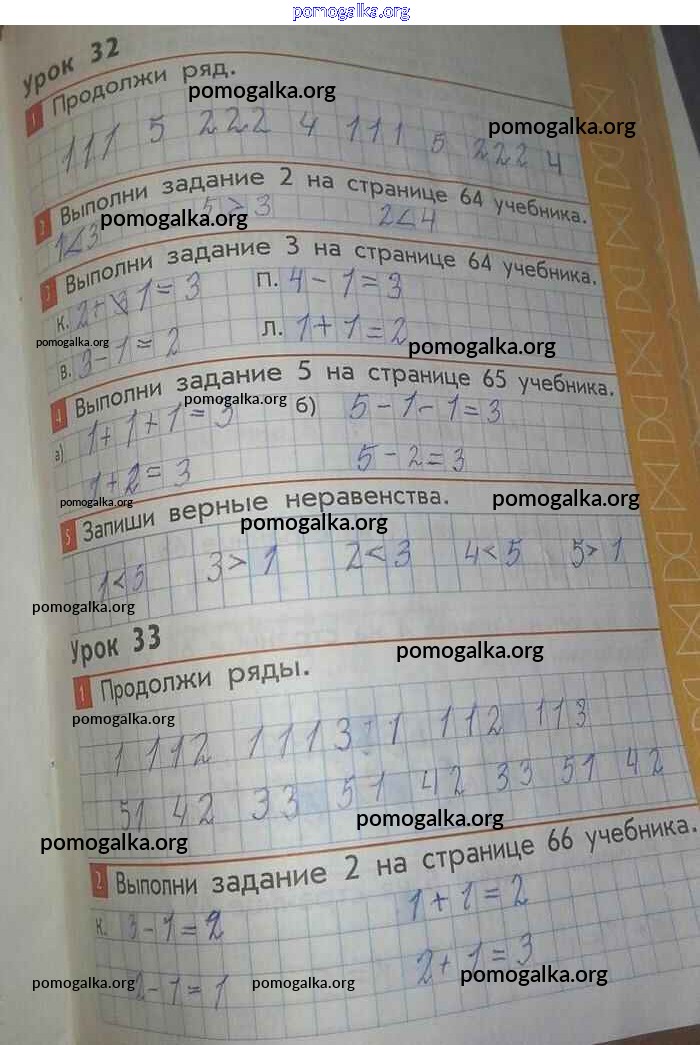 pomogalka.org
Урок 32
1 Продолжи ряд.
pomogalka.org
111 5 222 4 111 5 222 4
pomogalka.org
2 Выполни задание 2 на странице 64 учебника.
pomogalka.org
1<3 5>3 2<4
3 Выполни задание 3 на странице 64 учебника.
к. 2+1=3 п. 4-1=3
pomogalka.org
в. 3-1=2 л. 1+1=2
pomogalka.org
4 Выполни задание 5 на странице 65 учебника.
pomogalka.org
а) 1+1+1=3 б) 5-1-1=3
1+2=3 5-2=3
pomogalka.org
pomogalka.org
5 Запиши верные неравенства.
pomogalka.org
1<5 3>1 2<3 4<5 5>1
pomogalka.org
Урок 33
pomogalka.org
1 Продолжи ряды.
pomogalka.org
1 112 111311 112 113
51 42 33 51 42 33 51 42
pomogalka.org
pomogalka.org
2 Выполни задание 2 на странице 66 учебника.
к. 3-1=2 1+1=2
2-1=1 2+1=3
pomogalka.org pomogalka.org pomogalka.org